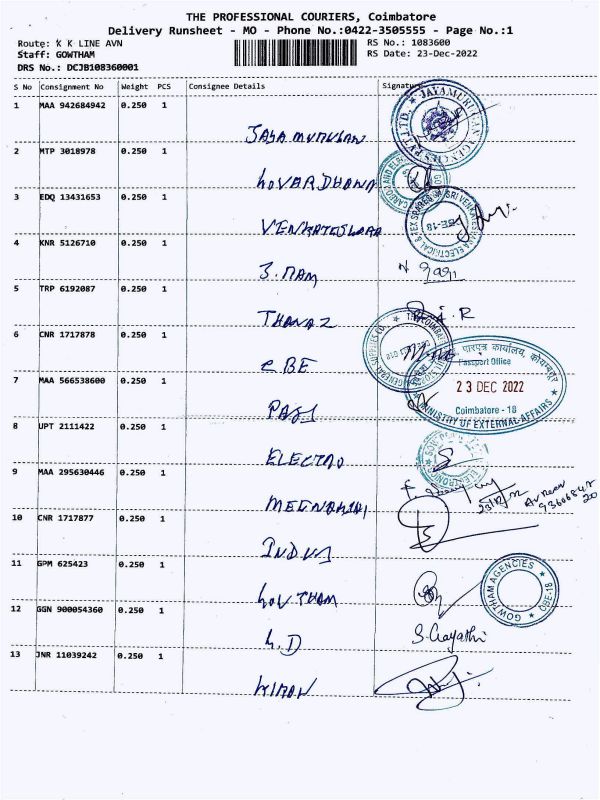 THE PROFESSIONAL COURIERS, Coimbatore
Delivery Runsheet - MO - Phone No.:0422-3505555 - Page No.:1
Route: K K LINE AVN
RS No.: 1083600
Staff: GOWTHAM
RS Date: 23-Dec-2022
DRS No.: DCJB108360001
S No Consignment No Weight PCS Consignee Details Signature
1 MAA 942684942 0.250 1
JAYAMURUGAN
JAYAMURUGAN AGENCIES PVT. LTD.
2 MTP 3018978 0.250 1
GOVARDHANA
3 EDQ 13431653 0.250 1
VENKATESWARA
SRI VENKATESWARA ELECTRICAL & TEX SPARES
CBE-18
4 KNR 5126710 0.250 1
5 TRP 6192087 0.250 1
6 CNR 1717878 0.250 1
CBE
GENERAL SUPPLIES CO.
पारपत्र कार्यालय, कोयम्बत्तूर
Passport Office
23 DEC 2022
Coimbatore - 18
MINISTRY OF EXTERNAL AFFAIRS
7 MAA 566538600 0.250 1
8 UPT 2111422 0.250 1
ELECTRO
9 MAA 295630446 0.250 1
10 CNR 1717877 0.250 1
11 GPM 625423 0.250 1
GOWTHAM
GOWTHAM AGENCIES
CBE-18
12 GGN 900054360 0.250 1
G.D
S.Gayathri
13 JNR 11039242 0.250 1
KIRAN